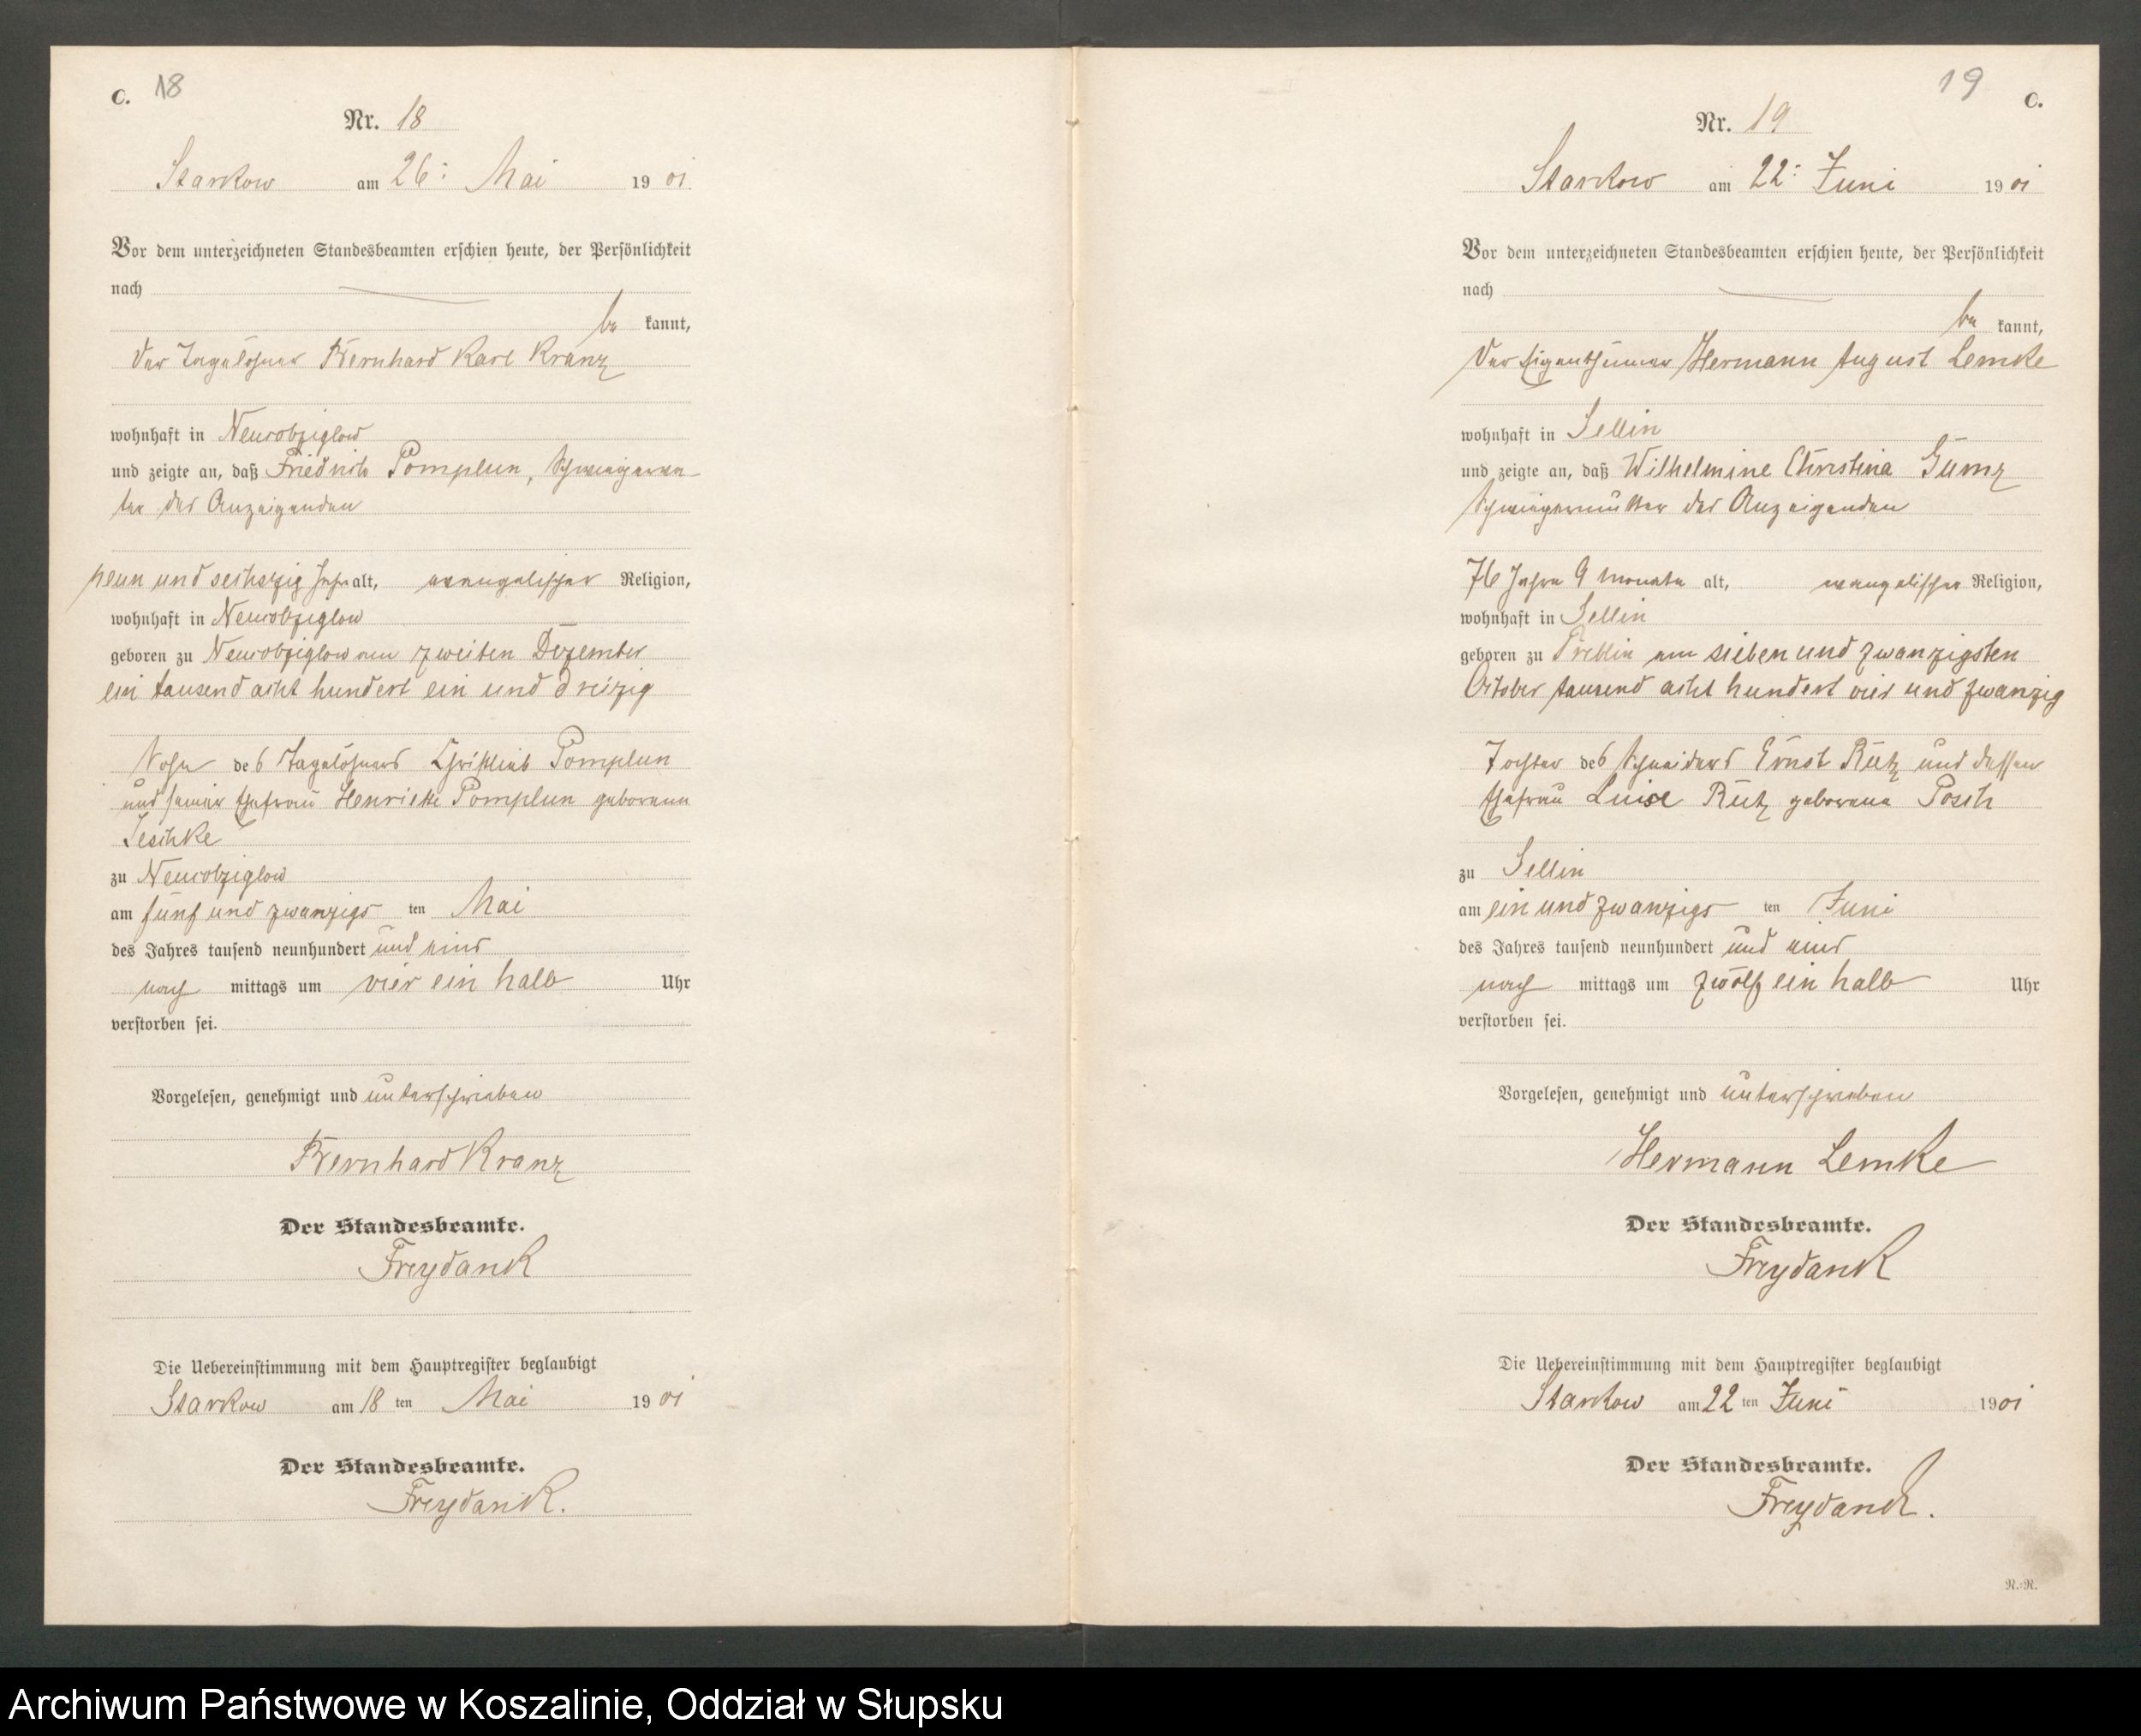 C. 18
Nr. 18
Starkow am 26: Mai 1901
Vor dem unterzeichneten Standesbeamten erschien heute, der Persönlichkeit
nach
be kannt,
der Tagelöhner Bernhard Karl Kranz
wohnhaft in Neuwobziglow
und zeigte an, daß Friedrich Pomplun, Schwiegerva-
ter des Anzeigenden
neun und sechszig Jahr alt, evangelischer Religion,
wohnhaft in Neuwobziglow
geboren zu Neuwobziglow am zweiten Dezember
ein tausend acht hundert ein und dreizig
Sohn des Tagelöhners Christlieb Pomplun
und seiner Ehefrau Henriette Pomplun geborenen
Jeschke
zu Neuwobziglow
am fünf und zwanzigs ten Mai
des Jahres tausend neunhundert und eins
nach mittags um vier ein halb Uhr
verstorben sei.
Vorgelesen, genehmigt und unterschrieben
Bernhard Kranz
Der Standesbeamte.
Freydank
Die Uebereinstimmung mit dem Hauptregister beglaubigt
Starkow am 18 ten Mai 1901
Der Standesbeamte.
Freydank.
19 C.
Nr. 19
Starkow am 22: Juni 1901
Vor dem unterzeichneten Standesbeamten erschien heute, der Persönlichkeit
nach
be kannt,
der Eigenthümer Hermann August Lemke
wohnhaft in Sellin
und zeigte an, daß Wilhelmine Christina Gumz
Schwiegermutter des Anzeigenden
76 Jahre 9 Monate alt, evangelischer Religion,
wohnhaft in Sellin
geboren zu am sieben und zwanzigsten
October tausend acht hundert vier und zwanzig
Tochter des Schneiders Ernst Rutz und dessen
Ehefrau Luise Rutz geborene Posch
zu Sellin
am ein und zwanzigs ten Juni
des Jahres tausend neunhundert und eins
nach mittags um zwölf ein halb Uhr
verstorben sei.
Vorgelesen, genehmigt und unterschrieben
Hermann Lemke
Der Standesbeamte.
Freydank
Die Uebereinstimmung mit dem Hauptregister beglaubigt
Starkow am 22 ten Juni 1901
Der Standesbeamte.
Freydank.
N.-N.
Archiwum Państwowe w Koszalinie, Oddział w Słupsku